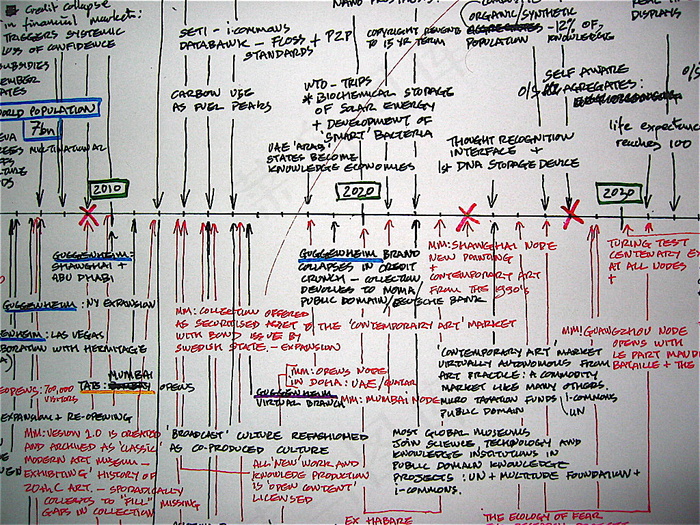 Credit collapse
in financial market:
TRIGGERS SYSTEMIC
LOSS OF CONFIDENCE
SUBSIDIES
WORLD POPULATION
7bn
MULTINATIONAL
SETI - i-COMMONS
DATABANK - FLOSS + P2P
STANDARDS
CARBON USE
AS FUEL PEAKS
COPYRIGHT REVERTS
TO 15 YR TERM
WTO - TRIPS
* BIOCHEMICAL STORAGE
OF SOLAR ENERGY
+ DEVELOPMENT OF
'SMART' BACTERIA
UAE 'ARAB'
STATES BECOME
KNOWLEDGE ECONOMIES
ORGANIC/SYNTHETIC
POPULATION
-12% OF
KNOWLEDGE
DISPLAYS
SELF AWARE
AGGREGATES:
THOUGHT RECOGNITION
INTERFACE +
1st DNA STORAGE DEVICE
life expectancy
reaches 100
2010
2020
GUGGENHEIM:
SHANGHAI +
ABU DHABI
GUGGENHEIM: NY EXPANSION
LAS VEGAS
WITH HERMITAGE
MUMBAI
OPENS
700,000
VISITORS
EXPANSION + RE-OPENING
MM: VERSION 1.0 IS CREATED
AND ARCHIVED AS 'CLASSIC'
MODERN ART MUSEUM -
EXHIBITING HISTORY OF
20th C ART. - SPORADICALLY
COLLECTS TO "FILL" MISSING
GAPS IN COLLECTION
MM: COLLECTION OFFERED
AS SECURITISED ASSET TO THE 'CONTEMPORARY ART' MARKET
WITH BOND ISSUE BY
SWEDISH STATE. - EXPANSION
GUGGENHEIM BRAND
COLLAPSES IN CREDIT
CRUNCH - COLLECTION
DEVOLVES TO MOMA/
PUBLIC DOMAIN/DEUTSCHE BANK
MM: SHANGHAI NODE
NEW PAINTING
+
CONTEMPORARY ART
FROM THE 1990's
TURING TEST
CENTENARY
AT ALL NODES
+
MM: OPENS NODE
IN DOHA: UAE/QATAR
GUGGENHEIM
VIRTUAL BRANCH
MM: MUMBAI NODE
'CONTEMPORARY ART' MARKET
VIRTUALLY AUTONOMOUS FROM
ART PRACTICE: A COMMODITY
MARKET LIKE MANY OTHERS.
MICRO TAXATION FUNDS i-COMMONS
PUBLIC DOMAIN / UN
MM: GUANGZHOU NODE
OPENS WITH
LE PART MAUDI
BATAILLE + THE
'BROADCAST' CULTURE REFASHIONED
AS CO-PRODUCED CULTURE
ALL NEW WORK AND
KNOWLEDGE PRODUCTION
IS 'OPEN CONTENT'
LICENSED
MOST GLOBAL MUSEUMS
JOIN SCIENCE, TECHNOLOGY AND
KNOWLEDGE INSTITUTIONS IN
PUBLIC DOMAIN KNOWLEDGE
PROJECTS: UN + MULTITUDE FOUNDATION +
i-COMMONS.
EX HABARE
THE ECOLOGY OF FEAR